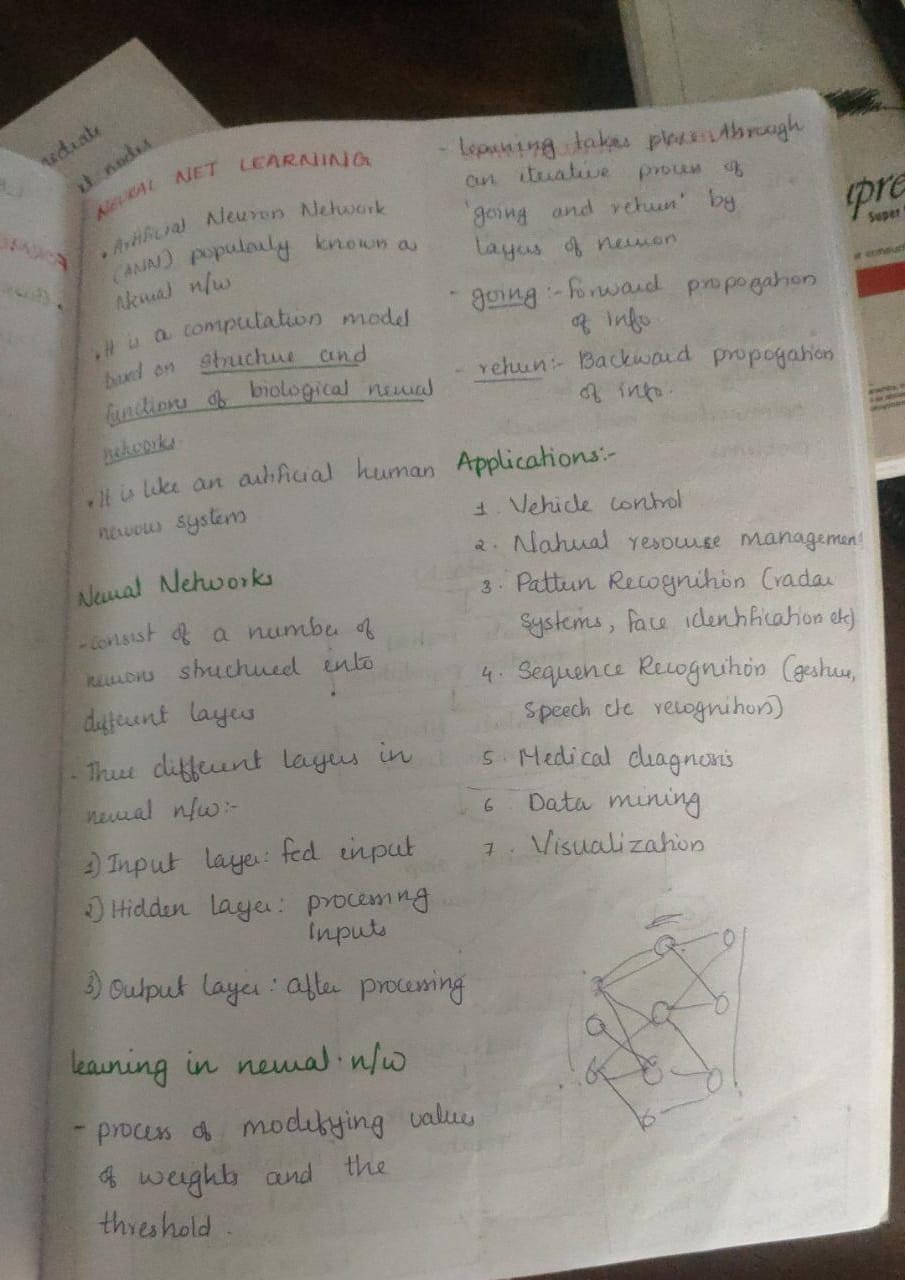 ediate
st nodes
NEURAL NET LEARNING
• Artificial Neuron Network
(ANN) popularly known as
Neural n/w
• It is a computation model
based on structure and
functions of biological neural
networks.
• It is like an artificial human
nervous system
Neural Networks
- consist of a number of
neurons structured into
different layers
- Three different layers in
neural n/w:-
1) Input layer: fed input
2) Hidden layer: processing
inputs
3) Output layer: after processing
learning in neural n/w
- process of modifying values
of weights and the
threshold.
- learning takes place through
an iterative process of
'going and return' by
layers of neuron
- going :- forward propogation
of info.
- return:- Backward propogation
of info.
Applications:-
1. Vehicle control
2. Natural resource management
3. Pattern Recognition (radar
systems, face identification etc)
4. Sequence Recognition (gesture,
speech etc recognitions)
5 Medical diagnosis
6 Data mining
7. Visualization
pre
Super